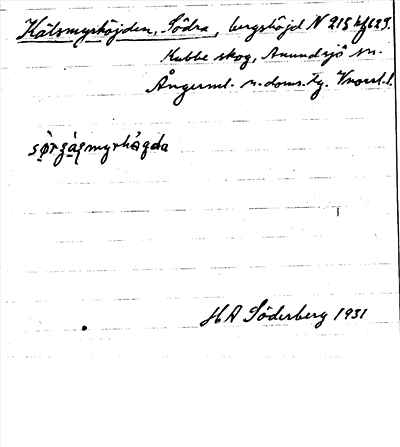 Kälsmyrhöjden, Södra, bergshöjd N 215 kf623.
Kubbe skog, Anundsjö sn.
Ångerml. n. doms. tg. Vnorrl. l.
HA Söderberg 1931